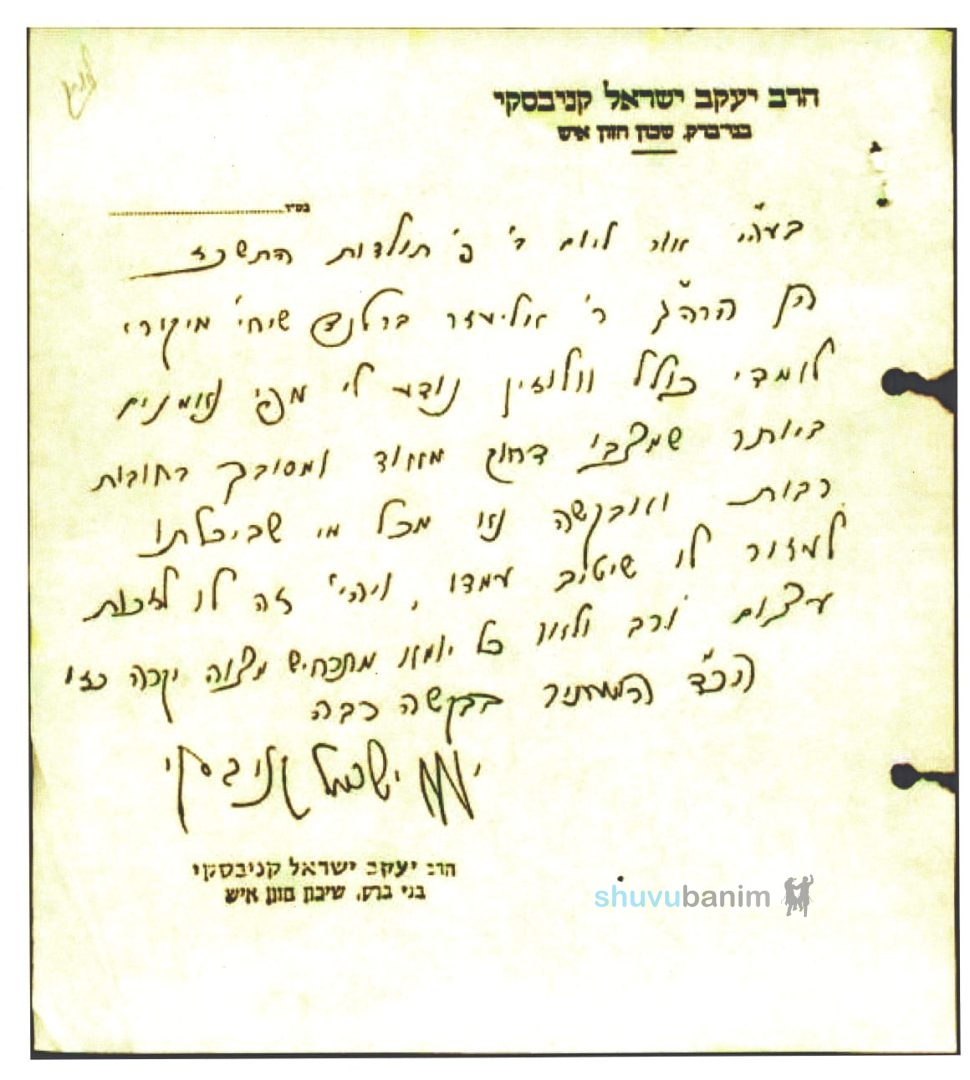 הרב יעקב ישראל קניבסקי
בני־ברק, שכון חזון איש
בס״ד
בעה״י אור ליום ד׳ פ׳ תולדות התשכז
הן הרה״ג ר׳ אליעזר ברלנד שיחי׳ מיקירי
לומדי כולל וולוזין נודע לי מפי נאמנים
ביותר שמצבו דחוק מאוד ומסובך בחובות
רבות ואבקשה נא מכל מי שביכלתו
לעזור לו שיטיב עמדו, ויהי׳ זה לו לזכות
עצום ורב ולאו כל יומא מתרחיש מצוה יקרה כזו
הכ״ד המעתיר בבקשה רבה
יעקב ישראל קניבסקי
הרב יעקב ישראל קניבסקי
בני ברק, שיכון חזון איש
shuvubanim